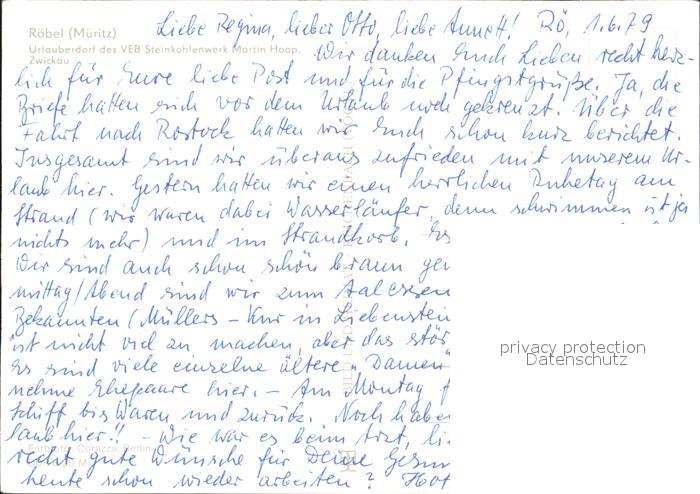 Röbel (Müritz)
Urlauberdorf des VEB Steinkohlenwerk Martin Hoop,
Zwickau
Liebe Regina, lieber Otto, liebe Annett! Rö, 1.6.79
Wir danken Euch Lieben recht herz-
lich für Eure liebe Post und für die Pfingstgrüße. Ja, die
Briefe hatten sich vor dem Urlaub noch gekreuzt. Über die
Fahrt nach Rostock hatten wir Euch schon kurz berichtet.
Insgesamt sind wir überaus zufrieden mit unserem Ur-
laub hier. Gestern hatten wir einen herrlichen Ruhetag am
Strand (wir waren dabei Wasserläufer, denn schwimmen ist ja
nichts mehr) und im Strandkorb. Es
Wir sind auch schon schön braun ge
mittag/Abend sind wir zum Aalessen
Bekannten (Müllers - Kur in Liebenstein
ist nicht viel zu machen, aber das stör
Es sind viele einzelne ältere "Damen"
nehme Ehepaare hier. - Am Montag f
Schiff bis Waren und zurück. Noch habe
laub hier!! - Wie war es beim Arzt, li.
recht gute Wünsche für Deine Gesun
heute schon wieder arbeiten? Hof
privacy protection
Datenschutz